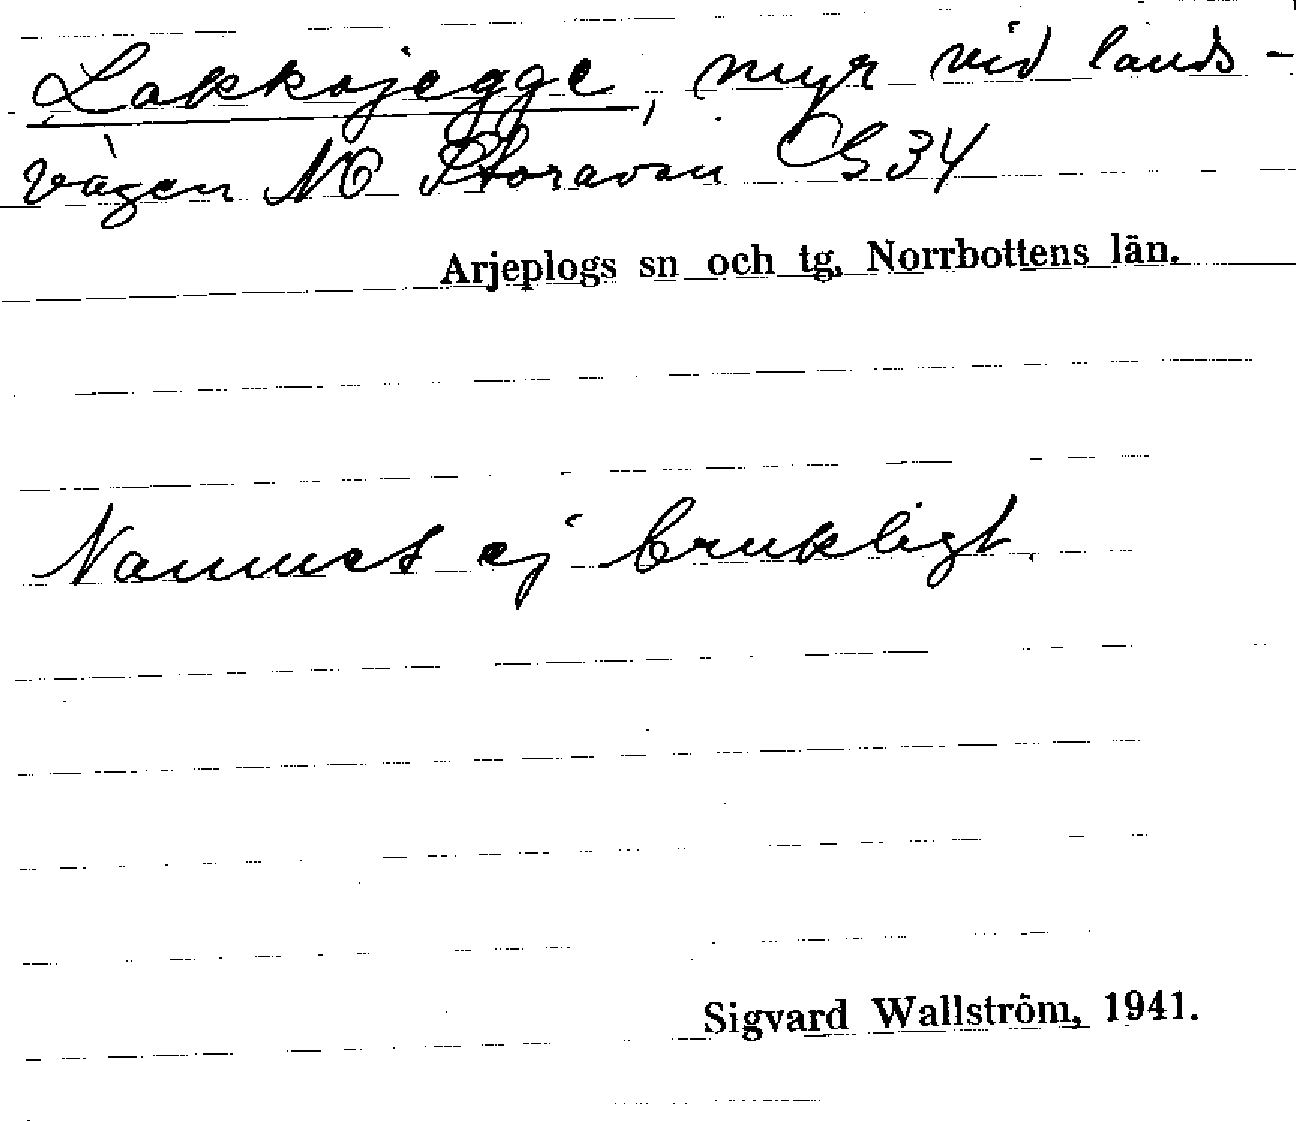 Lakkajegge, myr vid lands-
vägen NO Storavan CG 34
Arjeplogs sn och tg, Norrbottens län.
Namnet ej brukligt.
Sigvard Wallström, 1941.